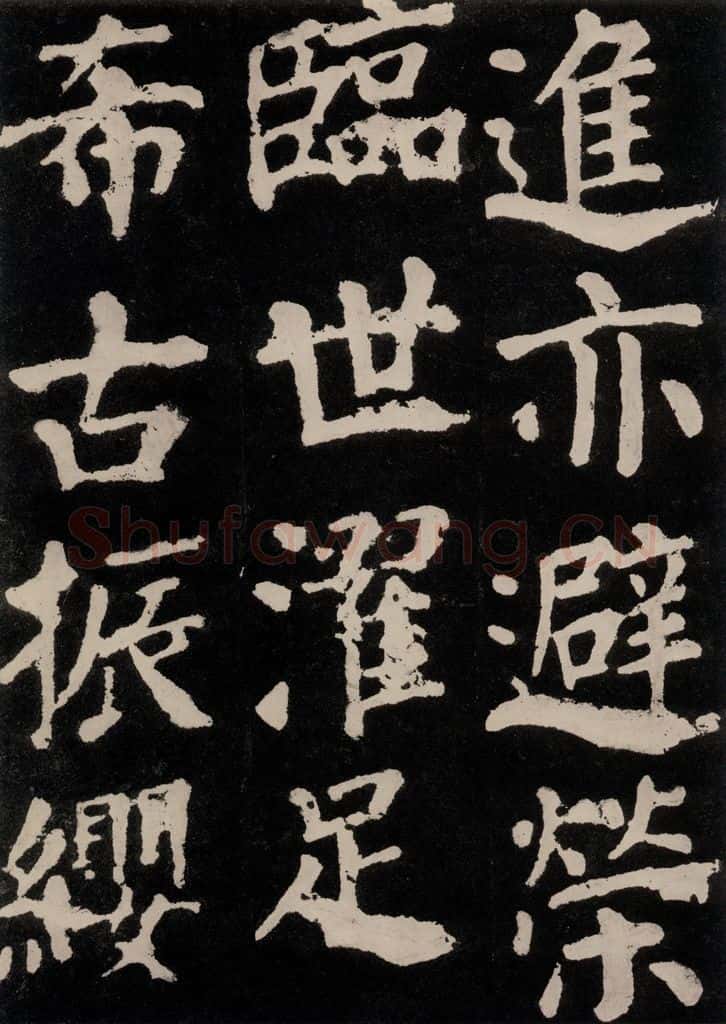 進亦避榮
臨世濯足
希古振纓
Shufawang.CN